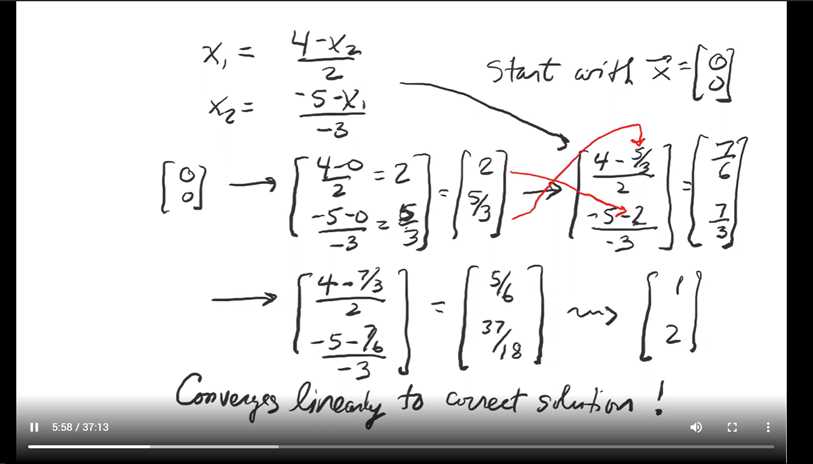 x₁ = (4-x₂)/2
x₂ = (-5-x₁)/-3
Start with x⃗ = [0; 0]
[0; 0] → [(4-0)/2 = 2; (-5-0)/-3 = 5/3] = [2; 5/3] → [(4-5/3)/2; (-5-2)/-3] = [7/6; 7/3]
→ [(4-7/3)/2; (-5-7/6)/-3] = [5/6; 37/18] ⇝ [1; 2]
Converges linearly to correct solution!
5:58 / 37:13